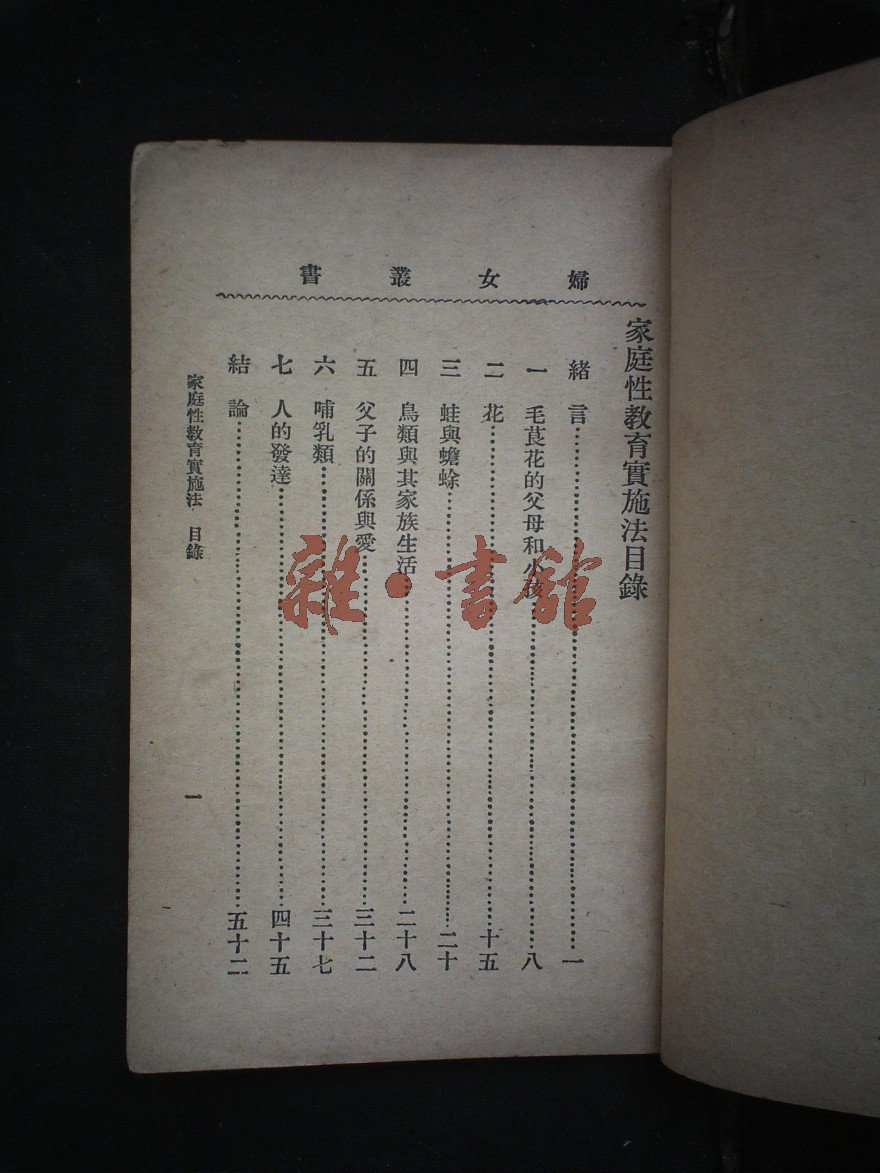 婦女叢書
家庭性教育實施法目錄
緒言……一
一 毛茛花的父母和小孩……八
二 花……十五
三 蛙與蟾蜍……二十
四 鳥類與其家族生活……二十八
五 父子的關係與愛……三十二
六 哺乳類……三十七
七 人的發達……四十五
結論……五十二
家庭性教育實施法 目錄
一
雜·書館